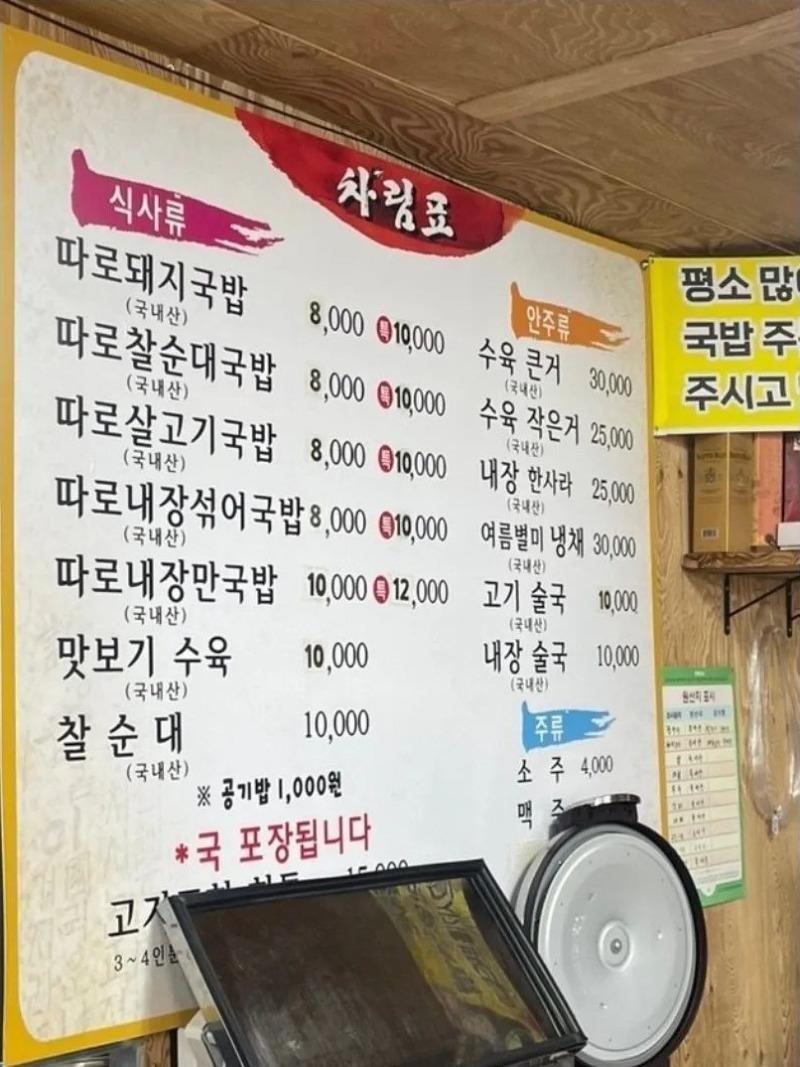 차림표
식사류
따로돼지국밥 8,000 특 10,000
(국내산)
따로찰순대국밥 8,000 특 10,000
(국내산)
따로살고기국밥 8,000 특 10,000
(국내산)
따로내장섞어국밥 8,000 특 10,000
(국내산)
따로내장만국밥 10,000 특 12,000
(국내산)
맛보기 수육 10,000
(국내산)
찰순대 10,000
(국내산)
※ 공기밥 1,000원
*국 포장됩니다
3~4인분
안주류
수육 큰거 30,000
(국내산)
수육 작은거 25,000
(국내산)
내장 한사라 25,000
(국내산)
여름별미 냉채 30,000
(국내산)
고기 술국 10,000
(국내산)
내장 술국 10,000
(국내산)
주류
소 주 4,000
맥 주
평소 많
국밥 주
주시고
원산지 표시